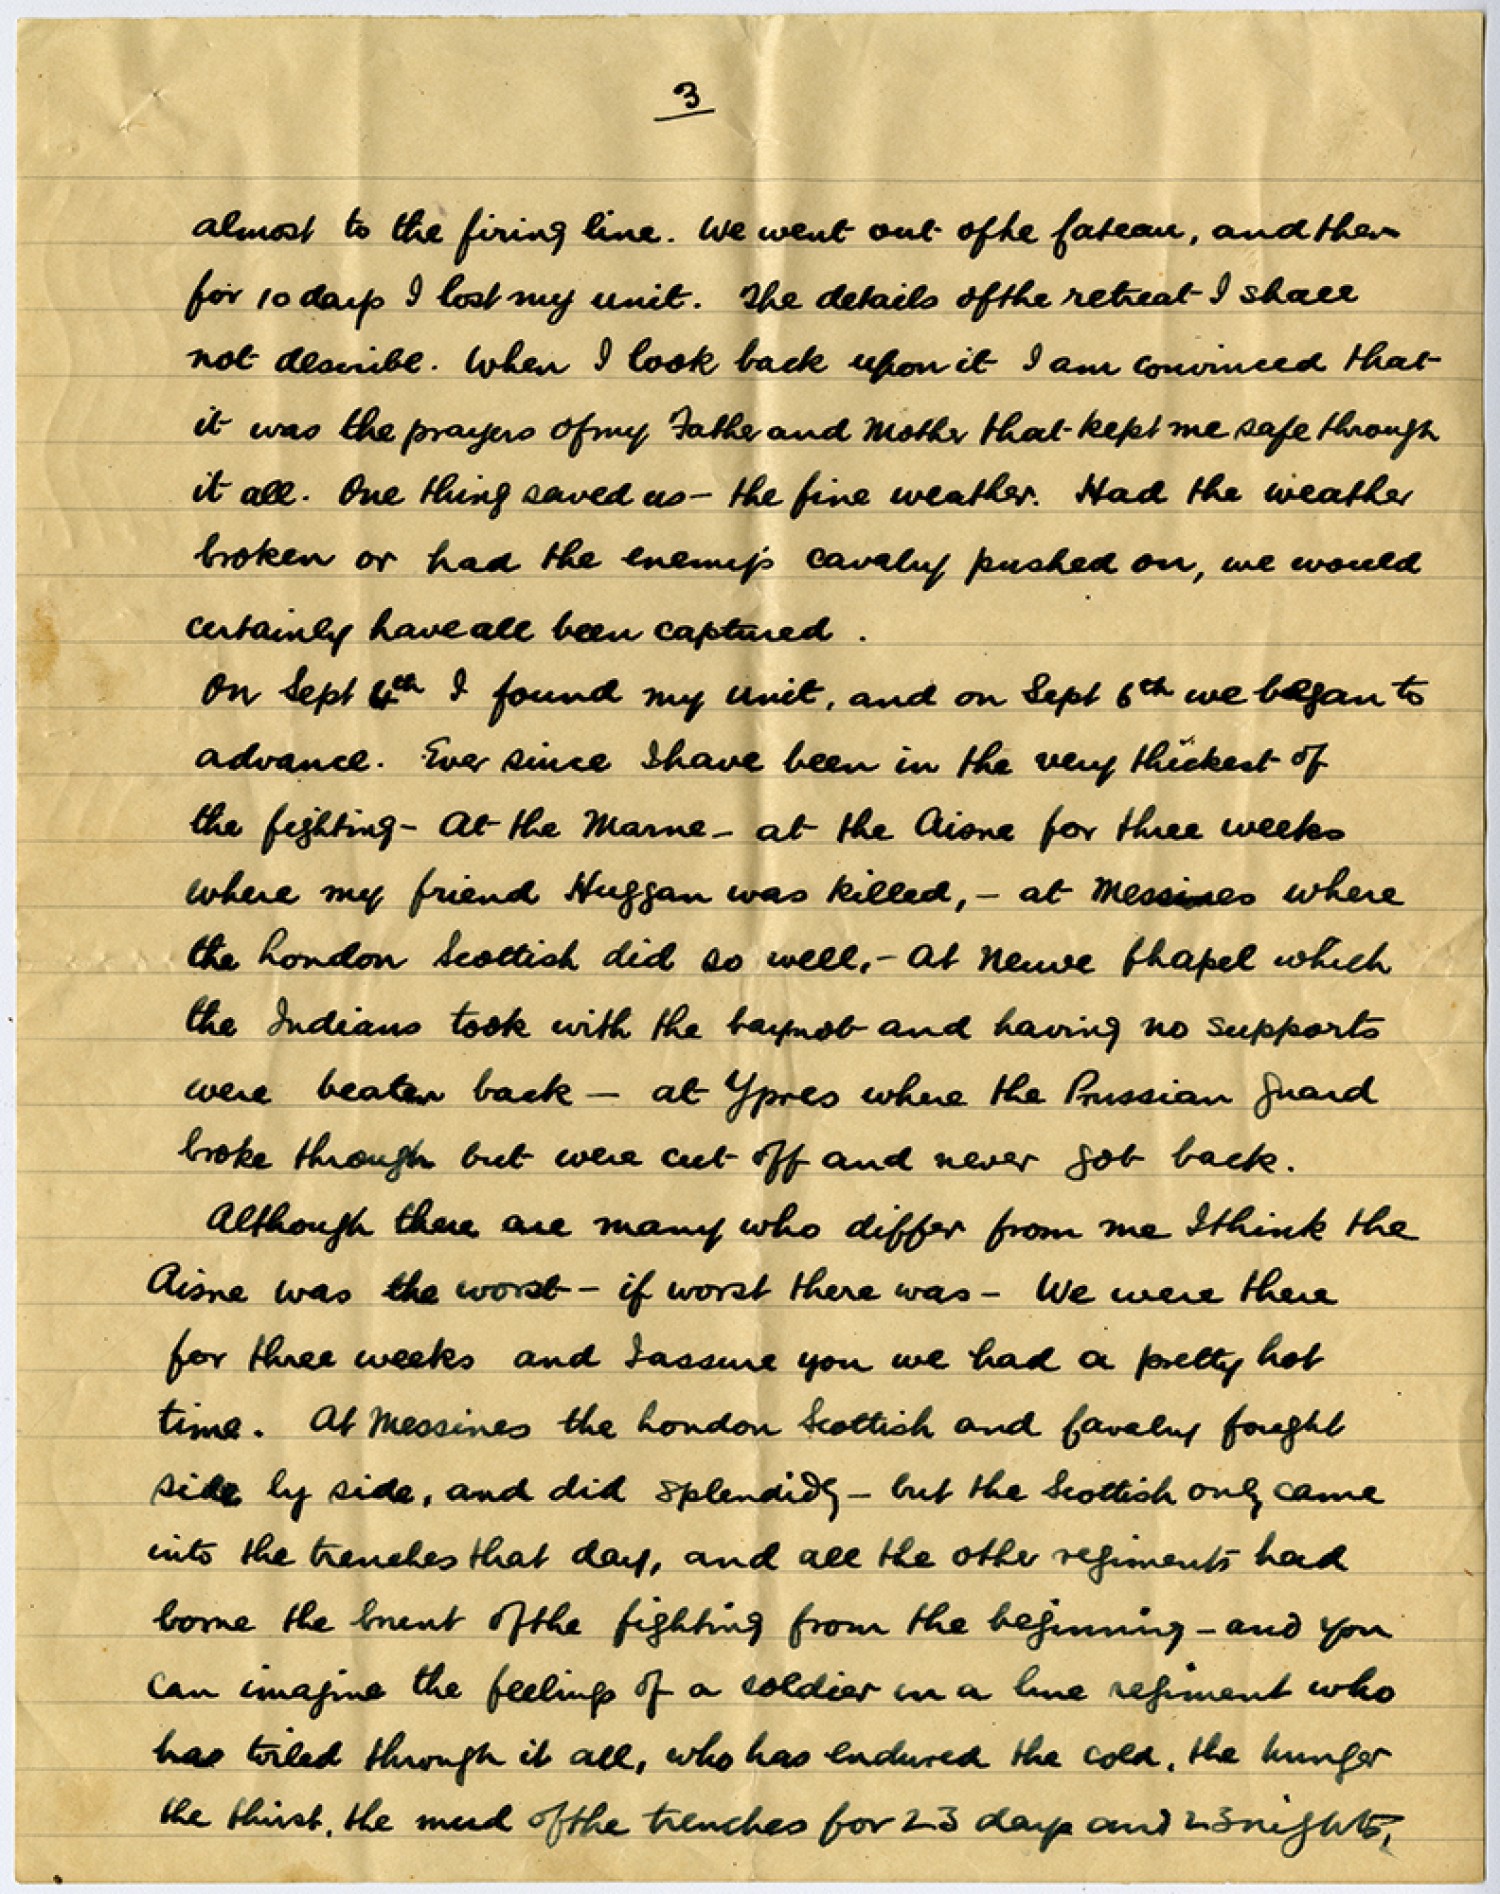 3
almost to the firing line. We went out of the Cateau, and then
for 10 days I lost my unit. The details of the retreat I shall
not describe. When I look back upon it I am convinced that
it was the prayers of my Father and Mother that kept me safe through
it all. One thing saved us – the fine weather. Had the weather
broken or had the enemy's cavalry pushed on, we would
certainly have all been captured.
On Sept 4th I found my unit, and on Sept 6th we began to
advance. Ever since I have been in the very thickest of
the fighting – At the Marne – at the Aisne for three weeks
where my friend Huggan was killed, – at Messines where
the London Scottish did so well, – At Neuve Chapel which
the Indians took with the baynot and having no supports
were beaten back – at Ypres where the Prussian Guard
broke through but were cut off and never got back.
Although there are many who differ from me I think the
Aisne was the worst – if worst there was – We were there
for three weeks and I assure you we had a pretty hot
time. At Messines the London Scottish and Cavalry fought
side by side, and did splendidly – but the Scottish only came
into the trenches that day, and all the other regiments had
borne the brunt of the fighting from the beginning – and you
can imagine the feelings of a soldier in a line regiment who
has toiled through it all, who has endured the cold, the hunger
the thirst, the mud of the trenches for 23 days and 23 nights,